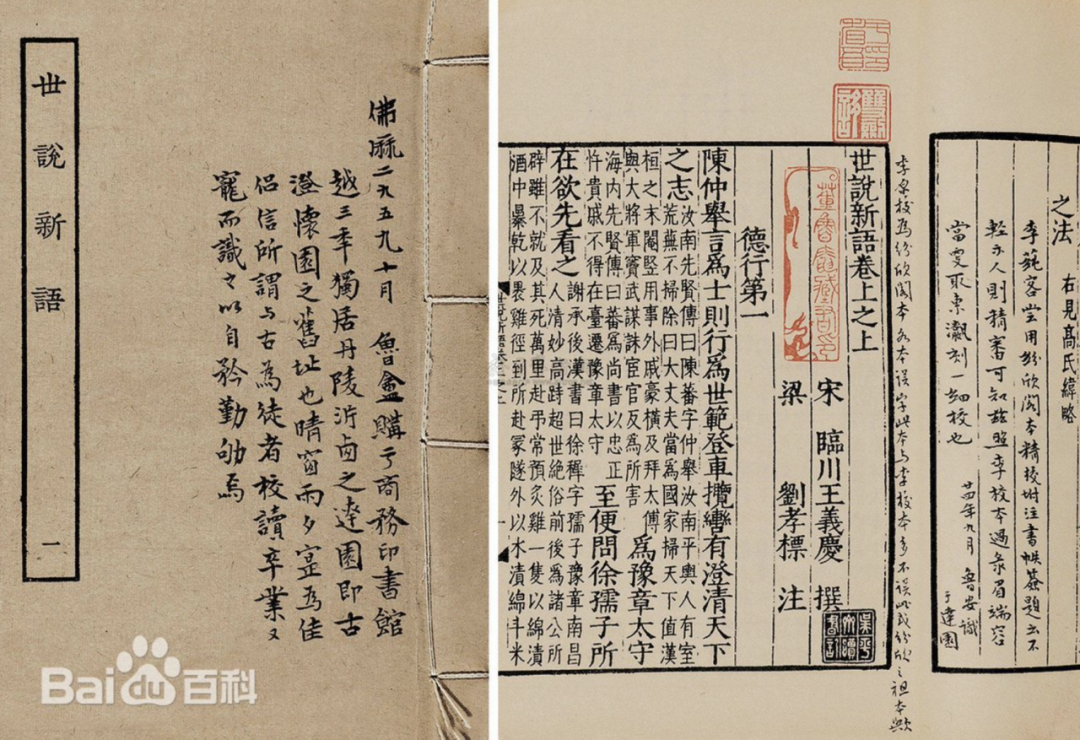 世說新語 一
佛厤二九五九十月 魯盦購于商務印書館
越三年獨居丹陵沜西之達園即古
澄懷園之舊址也晴窗雨夕寔為佳
侶信所謂与古為徒者校讀卒業又
寵而識之以自矜勤劬焉
之法
右見高氏緯略
李蒓客嘗用紛欣閣本精校坿注書帙簽題云不
輕示人則精審可知茲照李校本過彔眉端容
當更取袁刻一細校也
廿四年九月 魯安識
于達園
李校為紛欣閣本各本誤字此本与李校本多不誤此或紛欣之祖本歟
世說新語卷上之上
宋 臨川王義慶 撰
梁 劉孝標 注
德行第一
陳仲舉言為士則行為世範登車攬轡有澄清天下
之志汝南先賢傳曰陳蕃字仲舉汝南平輿人有室
荒蕪不掃除曰大丈夫當為國家掃天下值漢
桓之末閹豎用事外戚豪橫及拜太傅
與大將軍竇武謀誅宦官反為所害
為豫章太守
海內先賢傳曰蕃為尚書以忠正
忤貴戚不得在臺遷豫章太守
至便問徐孺子所
在欲先看之謝承後漢書曰徐穉字孺子豫章南昌
人清妙高跱超世絕俗前後為諸公所
辟雖不就及其死萬里赴弔常預炙雞一隻以綿漬
酒中暴乾以裹雞徑到所赴冢隧外以水漬綿斗米
董魯盦藏書印
Bai百科